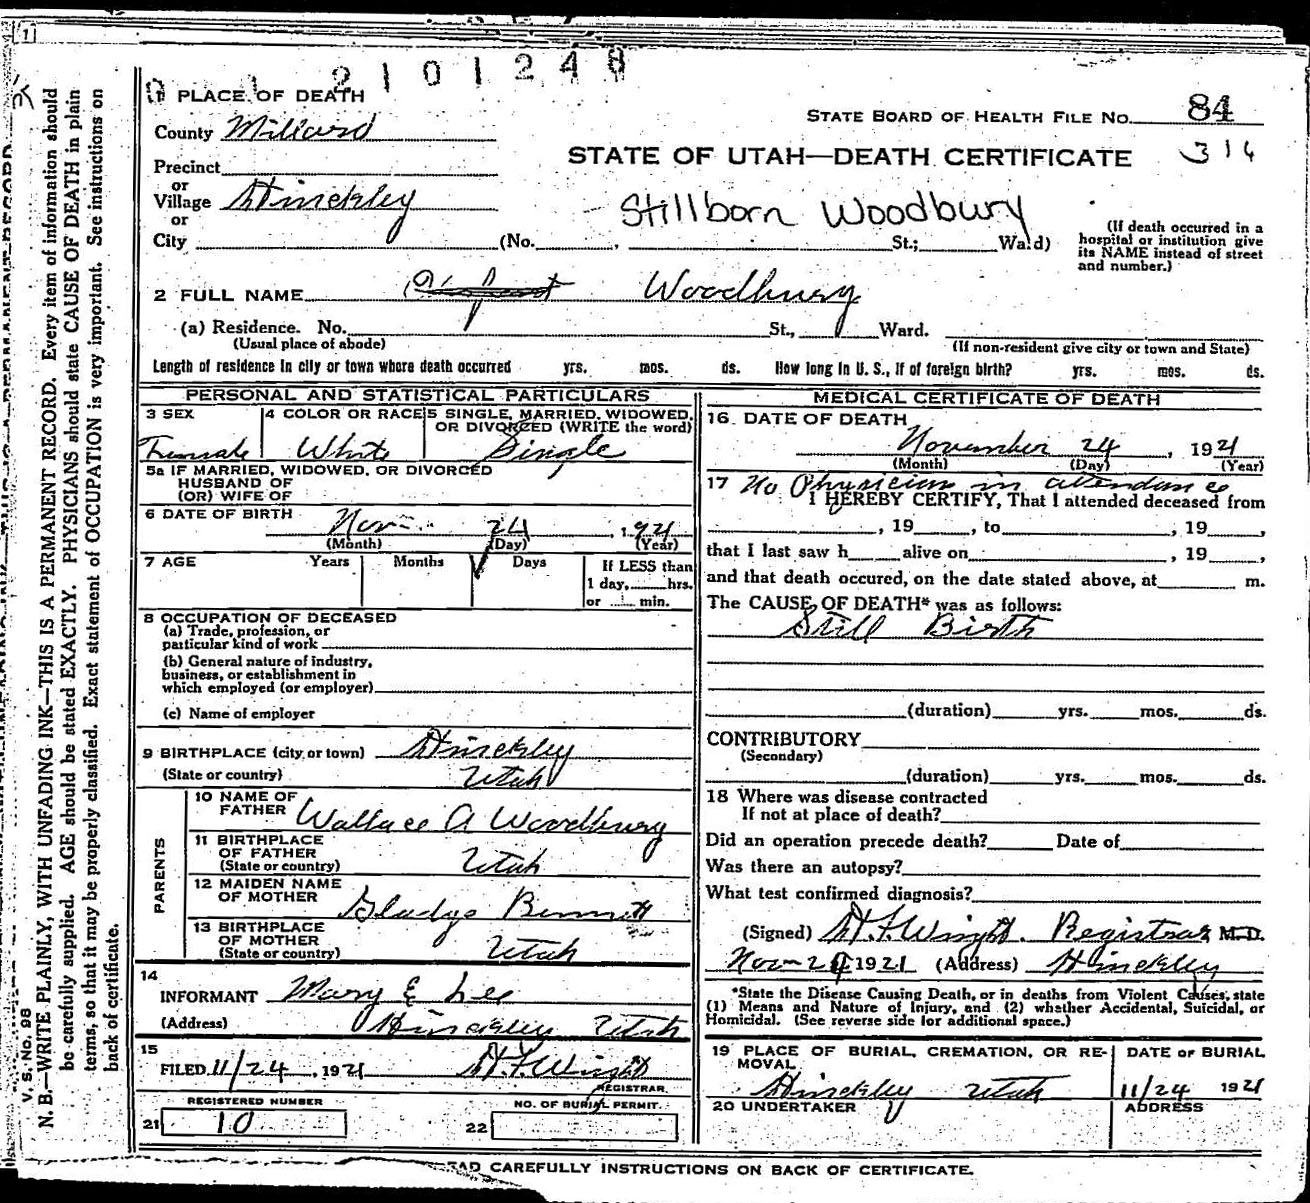 2 1 0 1 2 4 8
1 PLACE OF DEATH
STATE BOARD OF HEALTH FILE No. 84
County Millard
STATE OF UTAH—DEATH CERTIFICATE 314
Precinct
or
Village Hinckley
Stillborn Woodbury
or
City (No. , St.; Ward)
(If death occurred in a
hospital or institution give
its NAME instead of street
and number.)
2 FULL NAME Infant Woodbury
(a) Residence. No. St., Ward.
(Usual place of abode) (If non-resident give city or town and State)
Length of residence in city or town where death occurred yrs. mos. ds. How long in U. S., if of foreign birth? yrs. mos. ds.
PERSONAL AND STATISTICAL PARTICULARS
3 SEX 4 COLOR OR RACE 5 SINGLE, MARRIED, WIDOWED,
OR DIVORCED (WRITE the word)
Female White Single
5a IF MARRIED, WIDOWED, OR DIVORCED
HUSBAND OF
(OR) WIFE OF
6 DATE OF BIRTH
Nov. 24 , 1921
(Month) (Day) (Year)
7 AGE Years Months Days If LESS than
1 day, hrs.
or min.
8 OCCUPATION OF DECEASED
(a) Trade, profession, or
particular kind of work
(b) General nature of industry,
business, or establishment in
which employed (or employer)
(c) Name of employer
9 BIRTHPLACE (city or town) Hinckley
(State or country) Utah
PARENTS
10 NAME OF
FATHER Wallace A Woodbury
11 BIRTHPLACE
OF FATHER
(State or country) Utah
12 MAIDEN NAME
OF MOTHER Gladys Bennett
13 BIRTHPLACE
OF MOTHER
(State or country) Utah
14
INFORMANT Mary E Lee
(Address) Hinckley Utah
15
FILED 11/24 , 1921 H.F. Wright
REGISTRAR.
REGISTERED NUMBER NO. OF BURIAL PERMIT.
21 10 22
MEDICAL CERTIFICATE OF DEATH
16 DATE OF DEATH
November 24 , 1921
(Month) (Day) (Year)
17 No Physician in attendance
I HEREBY CERTIFY, That I attended deceased from
, 19 , to , 19 ,
that I last saw h alive on , 19 ,
and that death occured, on the date stated above, at m.
The CAUSE OF DEATH* was as follows:
Still Birth
(duration) yrs. mos. ds.
CONTRIBUTORY
(Secondary)
(duration) yrs. mos. ds.
18 Where was disease contracted
If not at place of death?
Did an operation precede death? Date of
Was there an autopsy?
What test confirmed diagnosis?
(Signed) H.F. Wright. Registrar M.D.
Nov-24 1921 (Address) Hinckley
*State the Disease Causing Death, or in deaths from Violent Causes, state
(1) Means and Nature of Injury, and (2) whether Accidental, Suicidal, or
Homicidal. (See reverse side for additional space.)
19 PLACE OF BURIAL, CREMATION, OR RE-
MOVAL
DATE OF BURIAL
Hinckley Utah 11/24 1921
20 UNDERTAKER ADDRESS
CAREFULLY INSTRUCTIONS ON BACK OF CERTIFICATE.
V. S. No. 98
N. B.—WRITE PLAINLY, WITH UNFADING INK—THIS IS A PERMANENT RECORD. Every item of information should
be carefully supplied. AGE should be stated EXACTLY. PHYSICIANS should state CAUSE OF DEATH in plain
terms, so that it may be properly classified. Exact statement of OCCUPATION is very important. See instructions on
back of certificate.